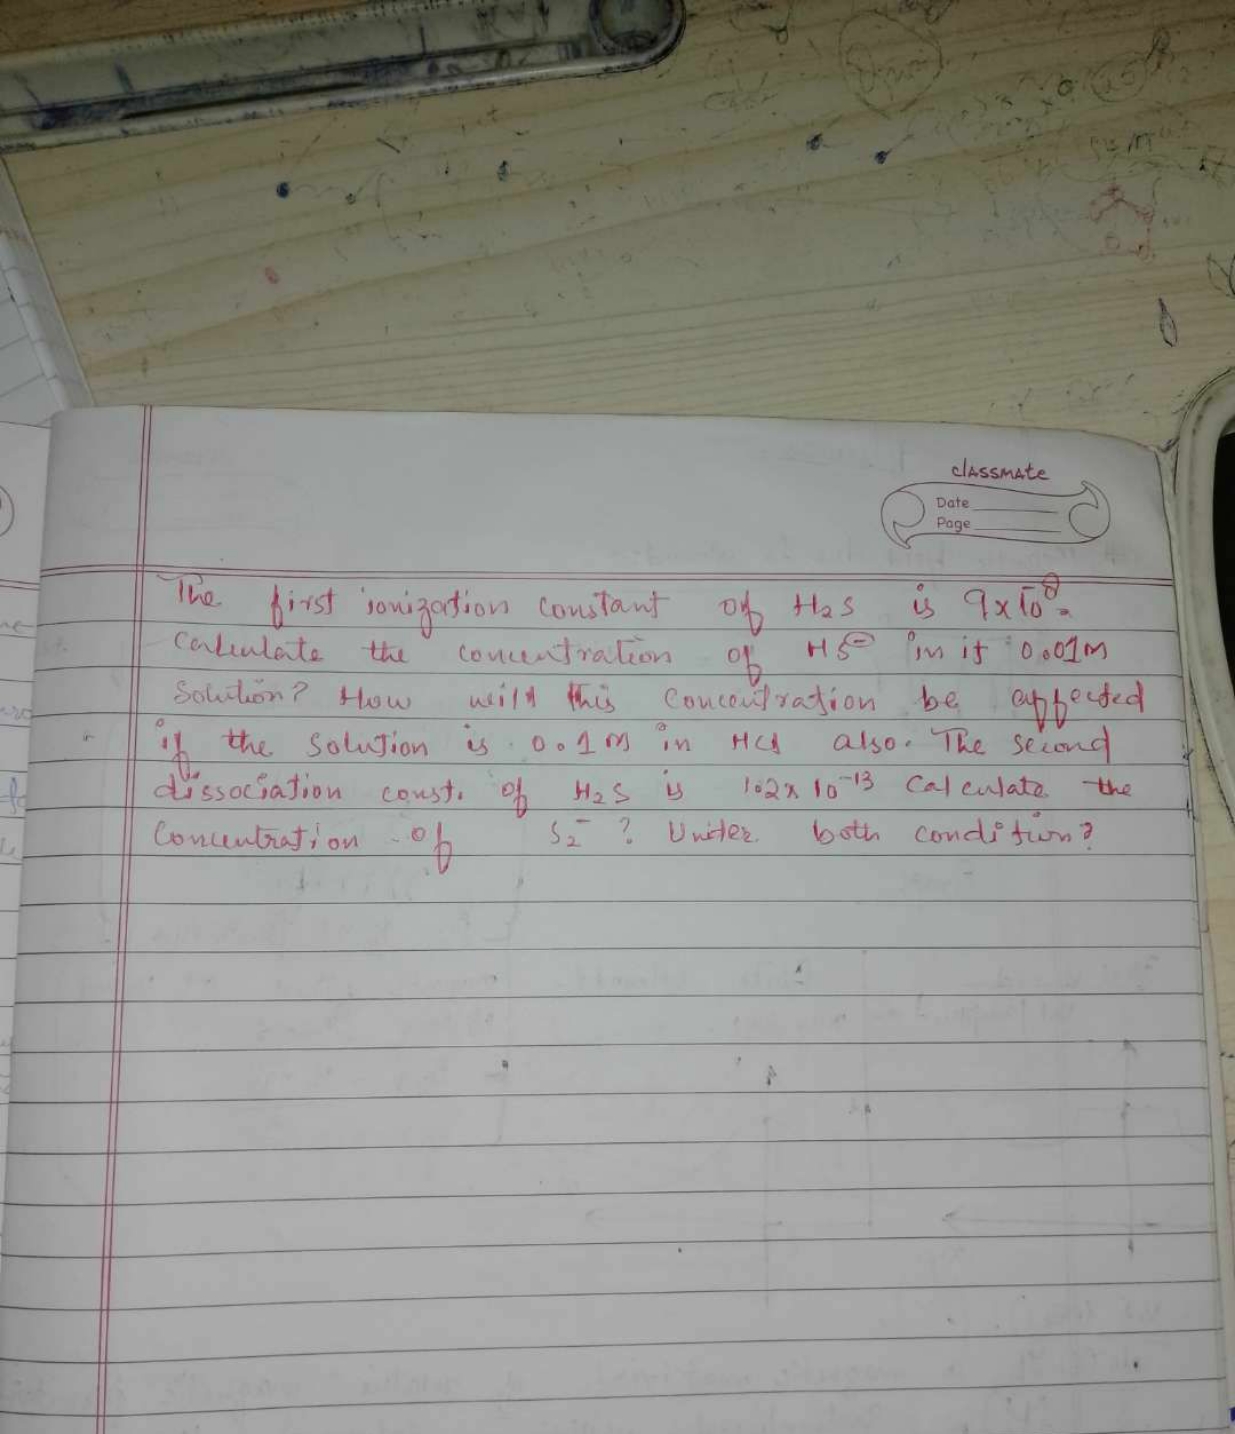 classmate
Date
Page
The first ionization constant of H₂S is 9×10⁻⁸.
Calculate the concentration of HS⊖ in it 0.01M
Solution? How will this concentration be affected
if the solution is 0.1M in HCl also. The second
dissociation const. of H₂S is 1.2×10⁻¹³ Calculate the
Concentration of S₂⁻? Under both condition?